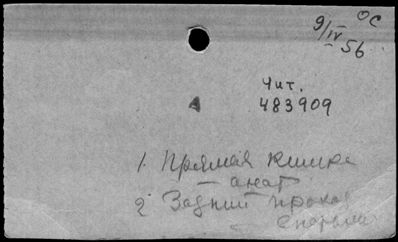 9/IV 56 ОС
Чит.
А 483909
1. Прямая кишка
— анат
2. Задний проход